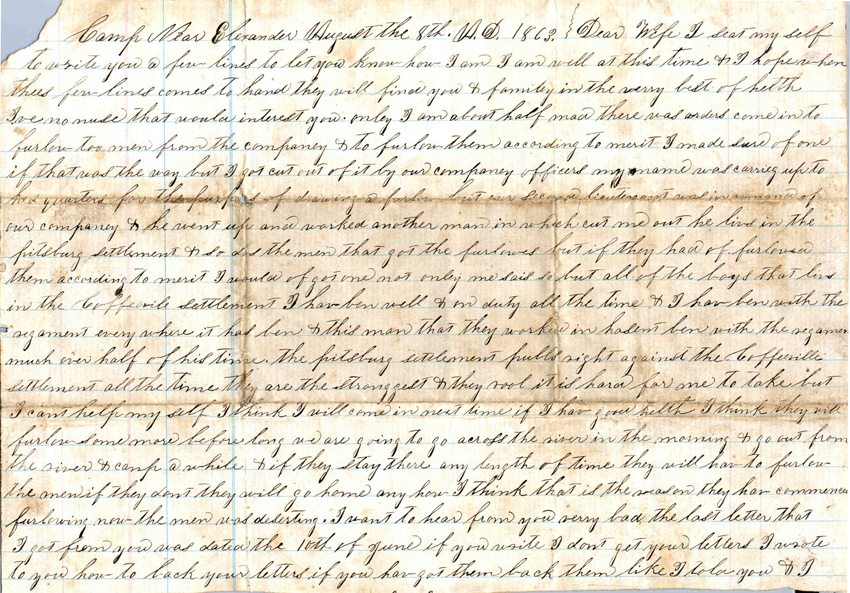 Camp Near Elexander August the 8th. A.D. 1863. Dear Wife I seat my self
to write you a few lines to let you know how I am I am well at this time & I hope when
thees few lines comes to hand they will find you & familey in the verry best of helth
I,ve no nuse that would interest you. only I am about half mad there was orders come in to
furlow too men from the companey & to furlow them according to merit I made sure of one
if that was the way but I got cut out of it by our companey officers my name was carried up to
hed quarters for the purpas of drawing a furlow but our second lieutenant was in command of
our companey & he went up and worked another man in which cut me out he livs in the
pitsburg settlement & so dos the men that got the furlowes but if they had of furlowed
them according to merit I would of got one not only me sais so but all of the boys that livs
in the Coffevile settlement I hav ben well & on duty all the time & I hav ben with the
regament every where it has ben & this man that they worked in hasent ben with the regamen
much over half of his time. the pitsburg settlement pulls right against the Coffeville
settlement all the time they are the stronggest & they rool it is hard for me to take but
I cant helf my self I think I will come in next time if I hav good helth I think they will
furlow some more before long we are going to go across the river in the morning & go out from
the river & camp a while & if they stay there any length of time they will hav to furlow
the men if they dont they will go home any how I think that is the reason they hav commenc
furlowing now the men was deserting. I want to hear from you verry bad the last letter that
I got from you was dated the 10th of June if you write I dont get your letters I wrote
to you how to back your letters if you hav got them back them like I told you & I